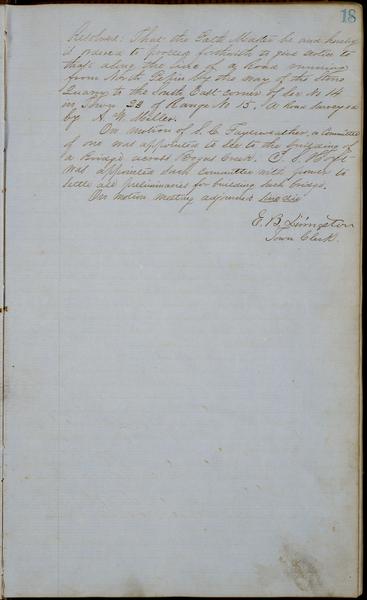 18
Resolved: That the Path Master be and hereby
is to proceed forthwith to give notice to
that along the line of a Road running
from North Pepin by the way of the Stone
Quarry to the South East corner of Sec No 14
in Town 23 of Range No 15. A Road surveyed
by A. W. Miller.
On motion of S. C. Fayerweather, a Committee
of one was appointed to see to the building of
a Bridge across Bogus Creek.
was appointed such committee with power to
settle all preliminaries for building such bridge.
On motion meeting adjourned sine die
E. B. Livingston
Town Clerk.